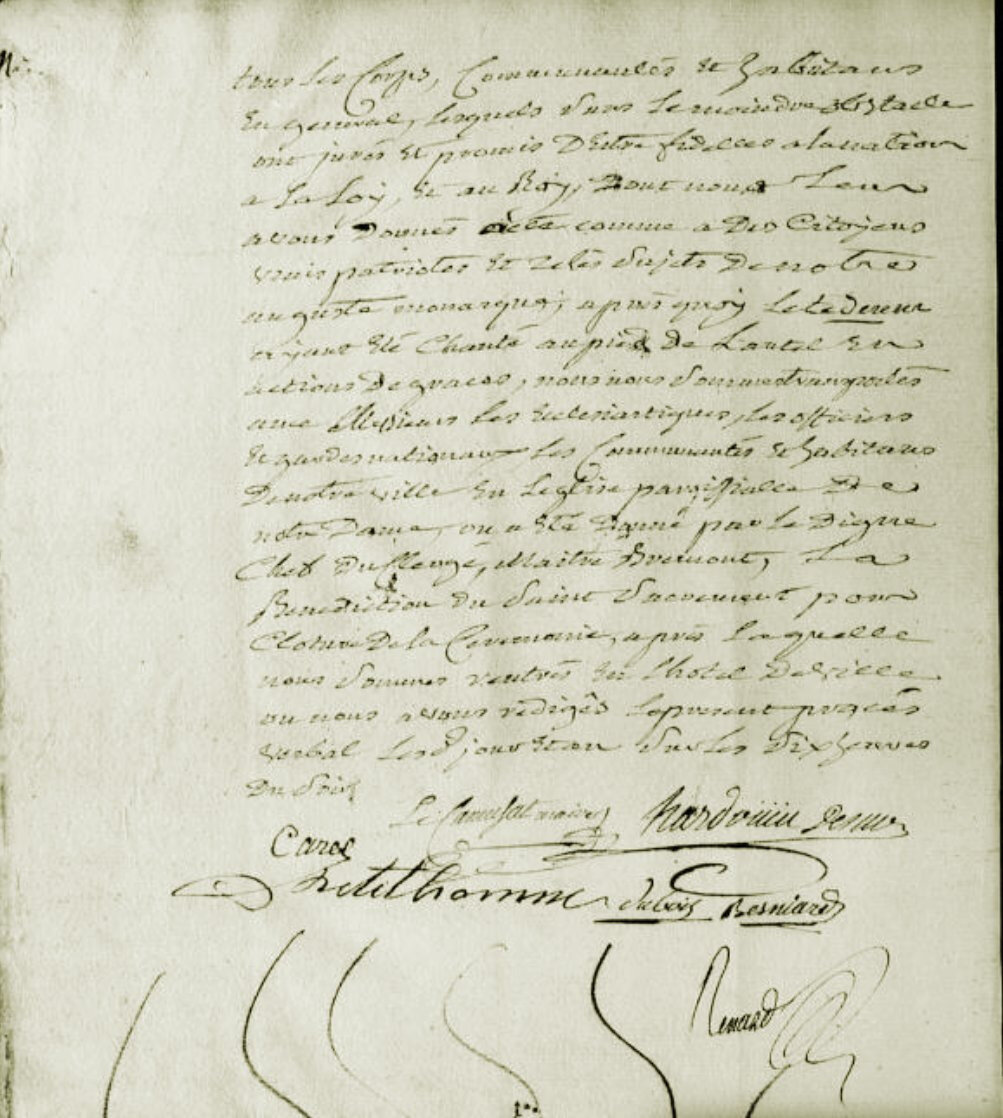 tous les Corps, Communautés Et habitans
En general, lesquels sans le moindre obstacle
ont jurés Et promis D'Estre fidelles a la nation
a La Loy, Et au Roy, Dont nous Leur
avons Donnés acte comme a Des Citoyens
vrais patriotes Et zelés sujets De notre
auguste monarque; après quoy Le te deum
ayant Eté Chanté au pied De L'autel En
actions De graces, nous nous sommes transportés
avec Messieurs Les Eclesiastiques, les officiers
Et gardes nationaux Les Communautés Et habitans
De notre ville En L'eglise paroissialle De
notre Dame, ou a Eté Donné par Le Digne
Chef Du Clergé, Maitre Bremont, La
Benediction Du Saint Sacrement pour
Cloture De la Ceremonie, après Laquelle
nous sommes rentrés En l'hotel De ville
ou nous avons rédigés le present procés
verbal Lesd jour Et an sur Les Dix heures
Du Soir
maire Hardouin
Carré
Petithomme dubois Besniard
Renard